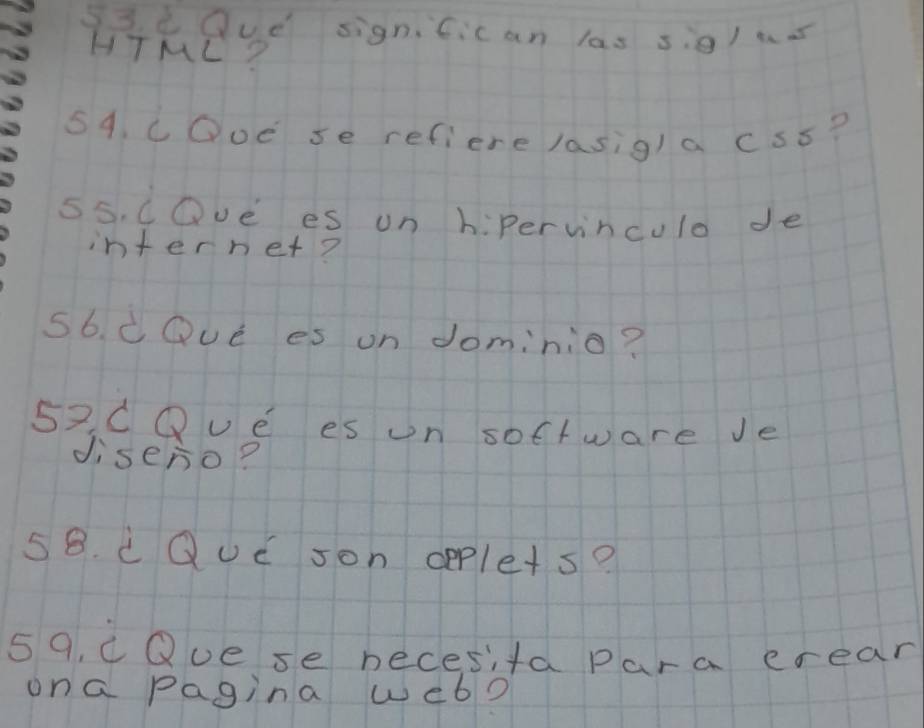 53.¿Qué significan las siglas
HTML?
54.¿Qué se refiere la sigla css?
55.¿Qué es un hipervinculo de
internet?
56.¿Qué es un dominio?
57.¿Qué es un software de
diseño?
58.¿Qué son applets?
59.¿Que se necesita para crear
una pagina web?